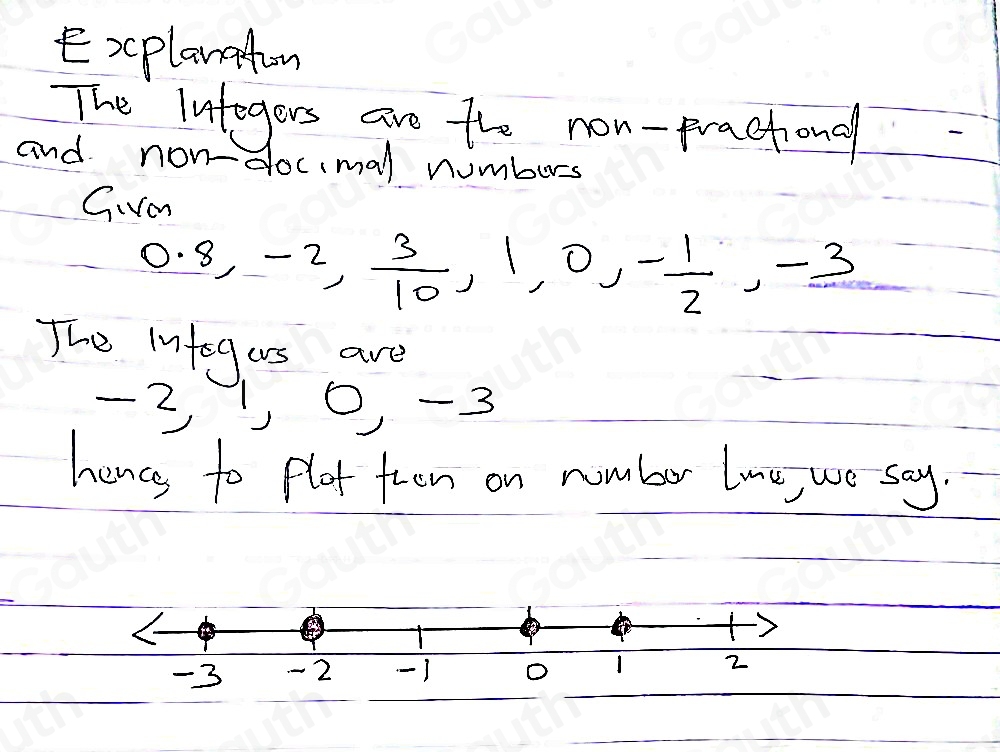 Explanation
The Integers are the non-fractional -
and non-decimal numbers
Given
0.8, -2, 3/10, 1, 0, -1/2, -3
The integers are
-2, 1, 0, -3
hence, to plot them on number line, we say.
-3 -2 -1 0 1 2